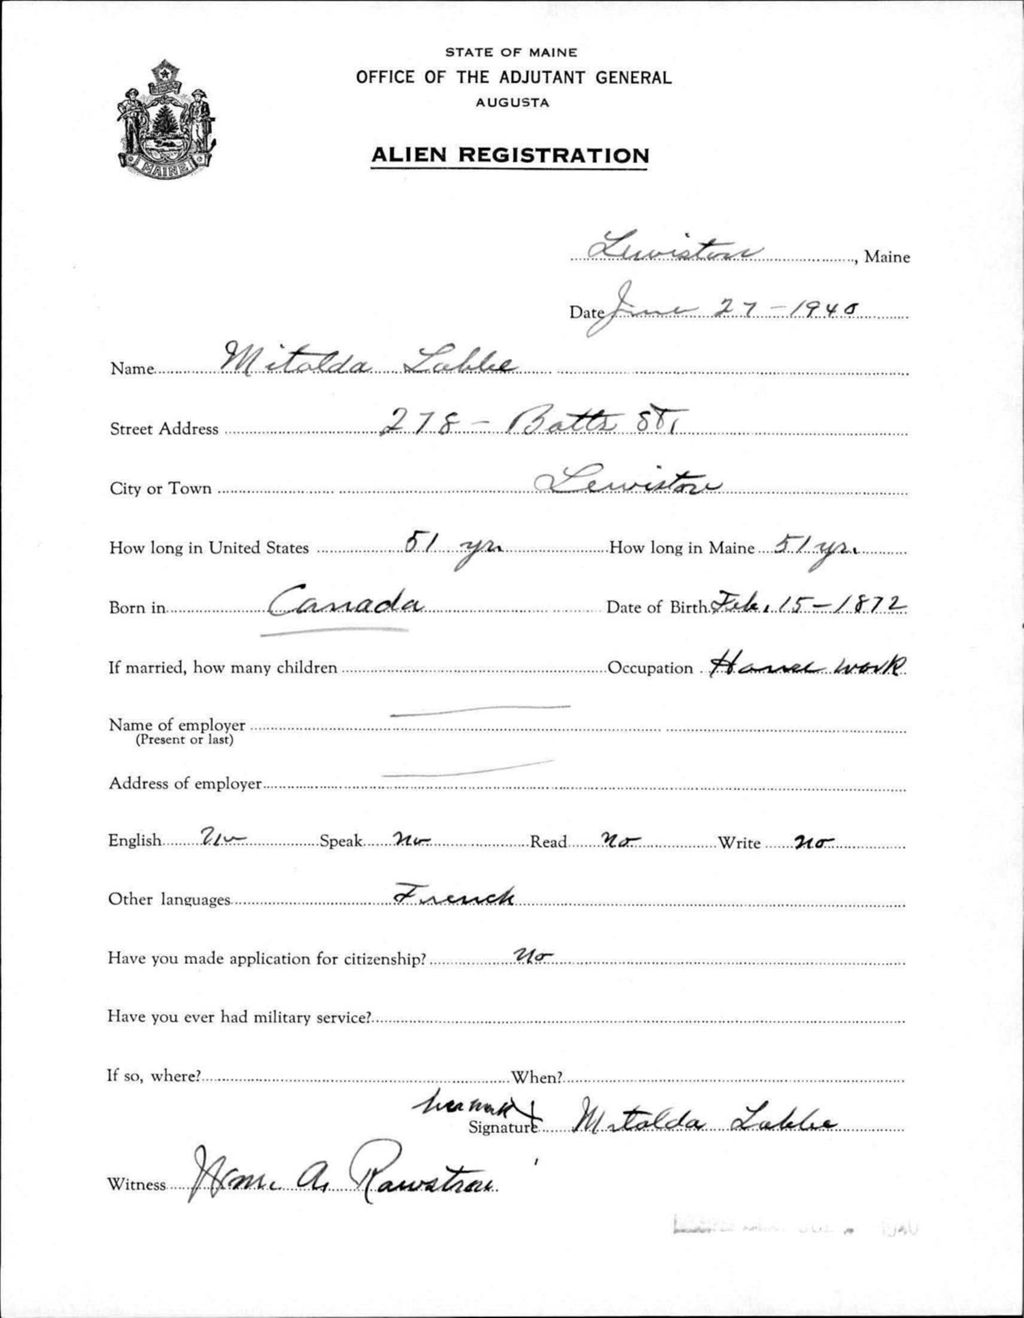 STATE OF MAINE
OFFICE OF THE ADJUTANT GENERAL
AUGUSTA
ALIEN REGISTRATION
MAINE
Lewiston, Maine
Date June 27-1940
Name Mitalda Labbe
Street Address 278 - Batts St,
City or Town Lewiston
How long in United States 51 yr. How long in Maine 51 yr.
Born in Canada Date of Birth Feb. 15-1872
If married, how many children Occupation House work
Name of employer
(Present or last)
Address of employer
English No Speak No Read No Write No
Other languages French
Have you made application for citizenship? No
Have you ever had military service?
If so, where? When?
her mark X
Signature Mitalda Labbe
Witness Wm. A. Rawstron